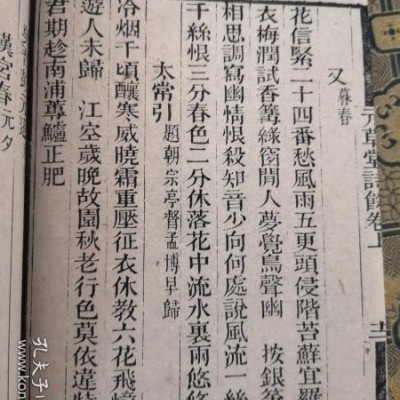 元草堂詩餘卷上
又 暮春
花信緊二十四番愁風雨五更頭侵階苔蘚宜羅
衣梅潤試香篝綠窗閒人夢覺鳥聲幽 按銀箏
相思調寫幽情恨殺知音少向何處說風流一絲
千絲恨三分春色二分休落花中流水裏兩悠悠
太常引 題朝宗亭督孟博早歸
冷烟千頃釀寒威曉霜重壓征衣休教六花飛
遊人未歸 江空歲晚故園秋老行色莫依違
君期趁南浦蓴鱸正肥
漢宮春 元夕